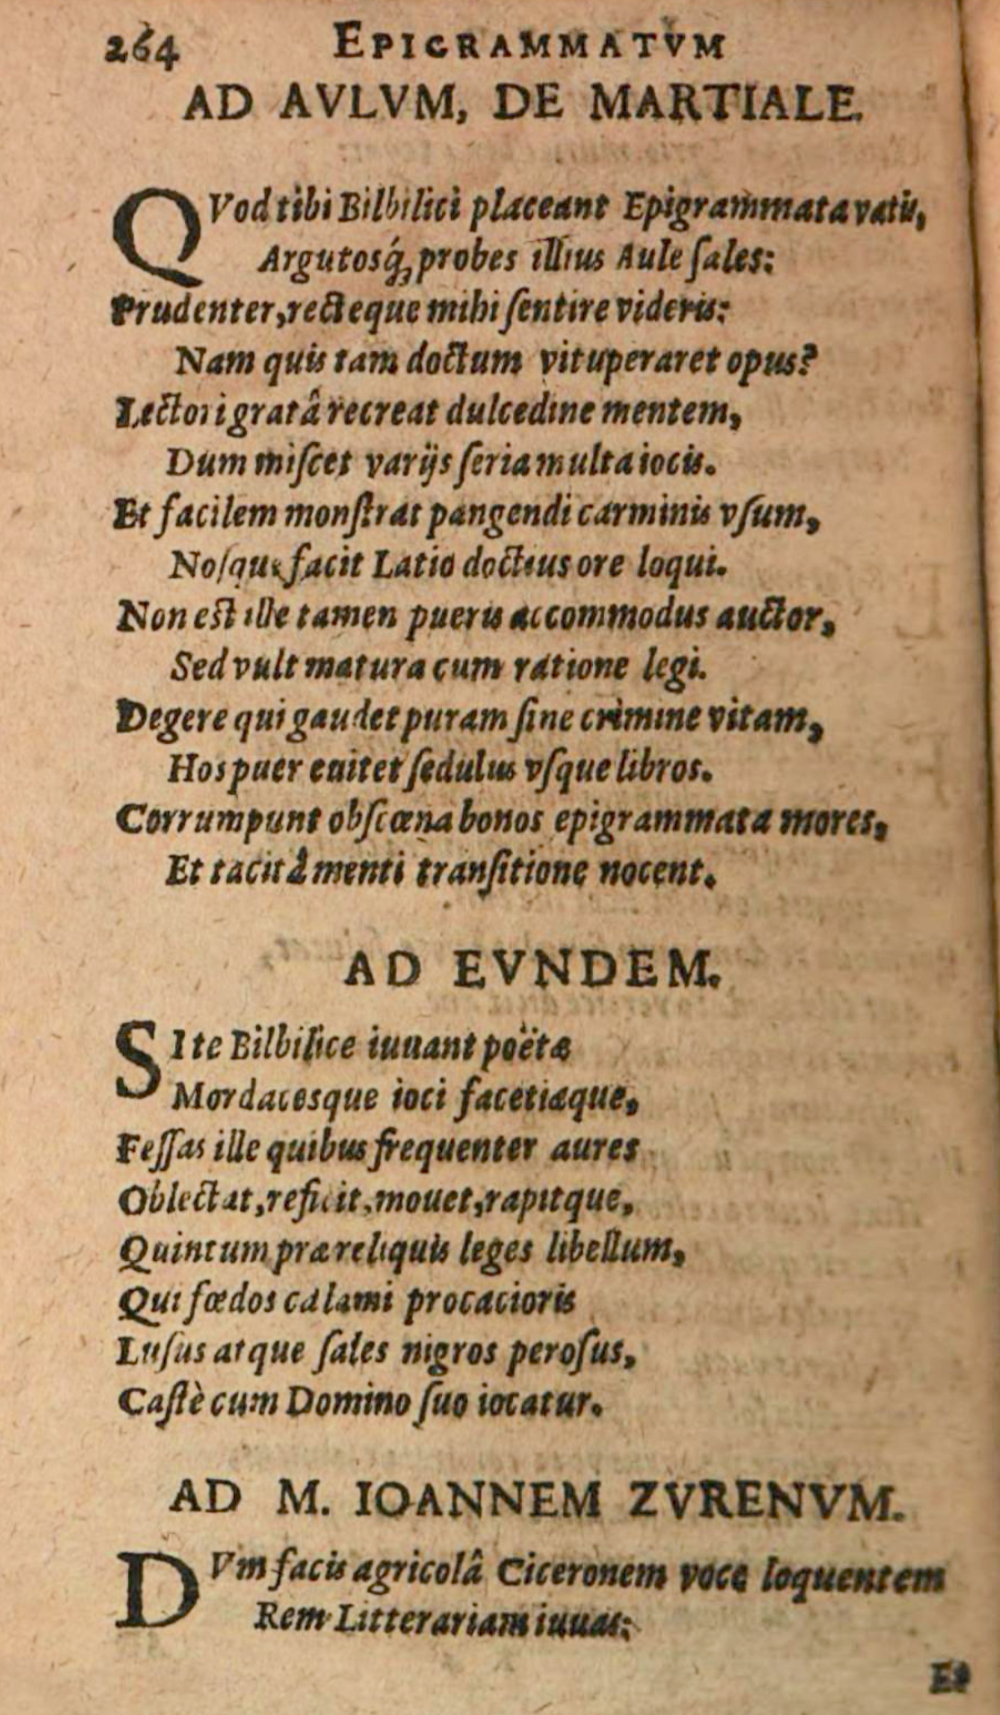 264 EPIGRAMMATVM
AD AVLVM, DE MARTIALE.
QVod tibi Bilbilici placeant Epigrammata vatis,
Argutosq́; probes illius Aule sales:
Prudenter, recteque mihi sentire videris:
Nam quis tam doctum vituperaret opus?
Lectori gratâ recreat dulcedine mentem,
Dum miscet varijs seria multa iocis.
Et facilem monstrat pangendi carminis vsum,
Nosque facit Latio doctius ore loqui.
Non est ille tamen pueris accommodus auctor,
Sed vult matura cum ratione legi.
Degere qui gaudet puram sine crimine vitam,
Hos puer euitet sedulus vsque libros.
Corrumpunt obscœna bonos epigrammata mores,
Et tacitâ menti transitione nocent.
AD EVNDEM.
SI te Bilbilice iuuant poëtæ
Mordacesque ioci facetiæque,
Fessas ille quibus frequenter aures
Oblectat, reficit, mouet, rapitque,
Quintum præ reliquis leges libellum,
Qui fœdos calami procacioris
Lusus atque sales nigros perosus,
Castè cum Domino suo iocatur.
AD M. IOANNEM ZVRENVM.
DVm facis agricolâ Ciceronem voce loquentem
Rem Litterariam iuuas:
Et